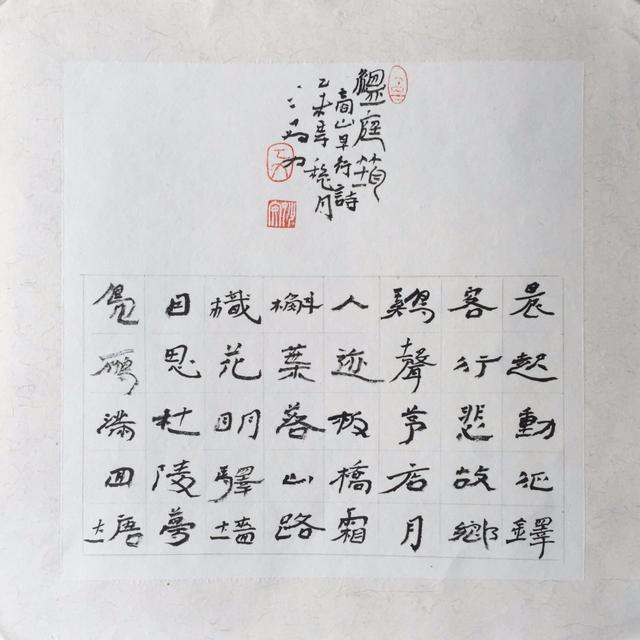 溫庭筠
商山早行詩
乙未年穐月
晨起動征鐸
客行悲故鄉
鷄聲茅店月
人迹板橋霜
槲葉落山路
樴花明驛墻
因思杜陵夢
鳧鴈滿回塘